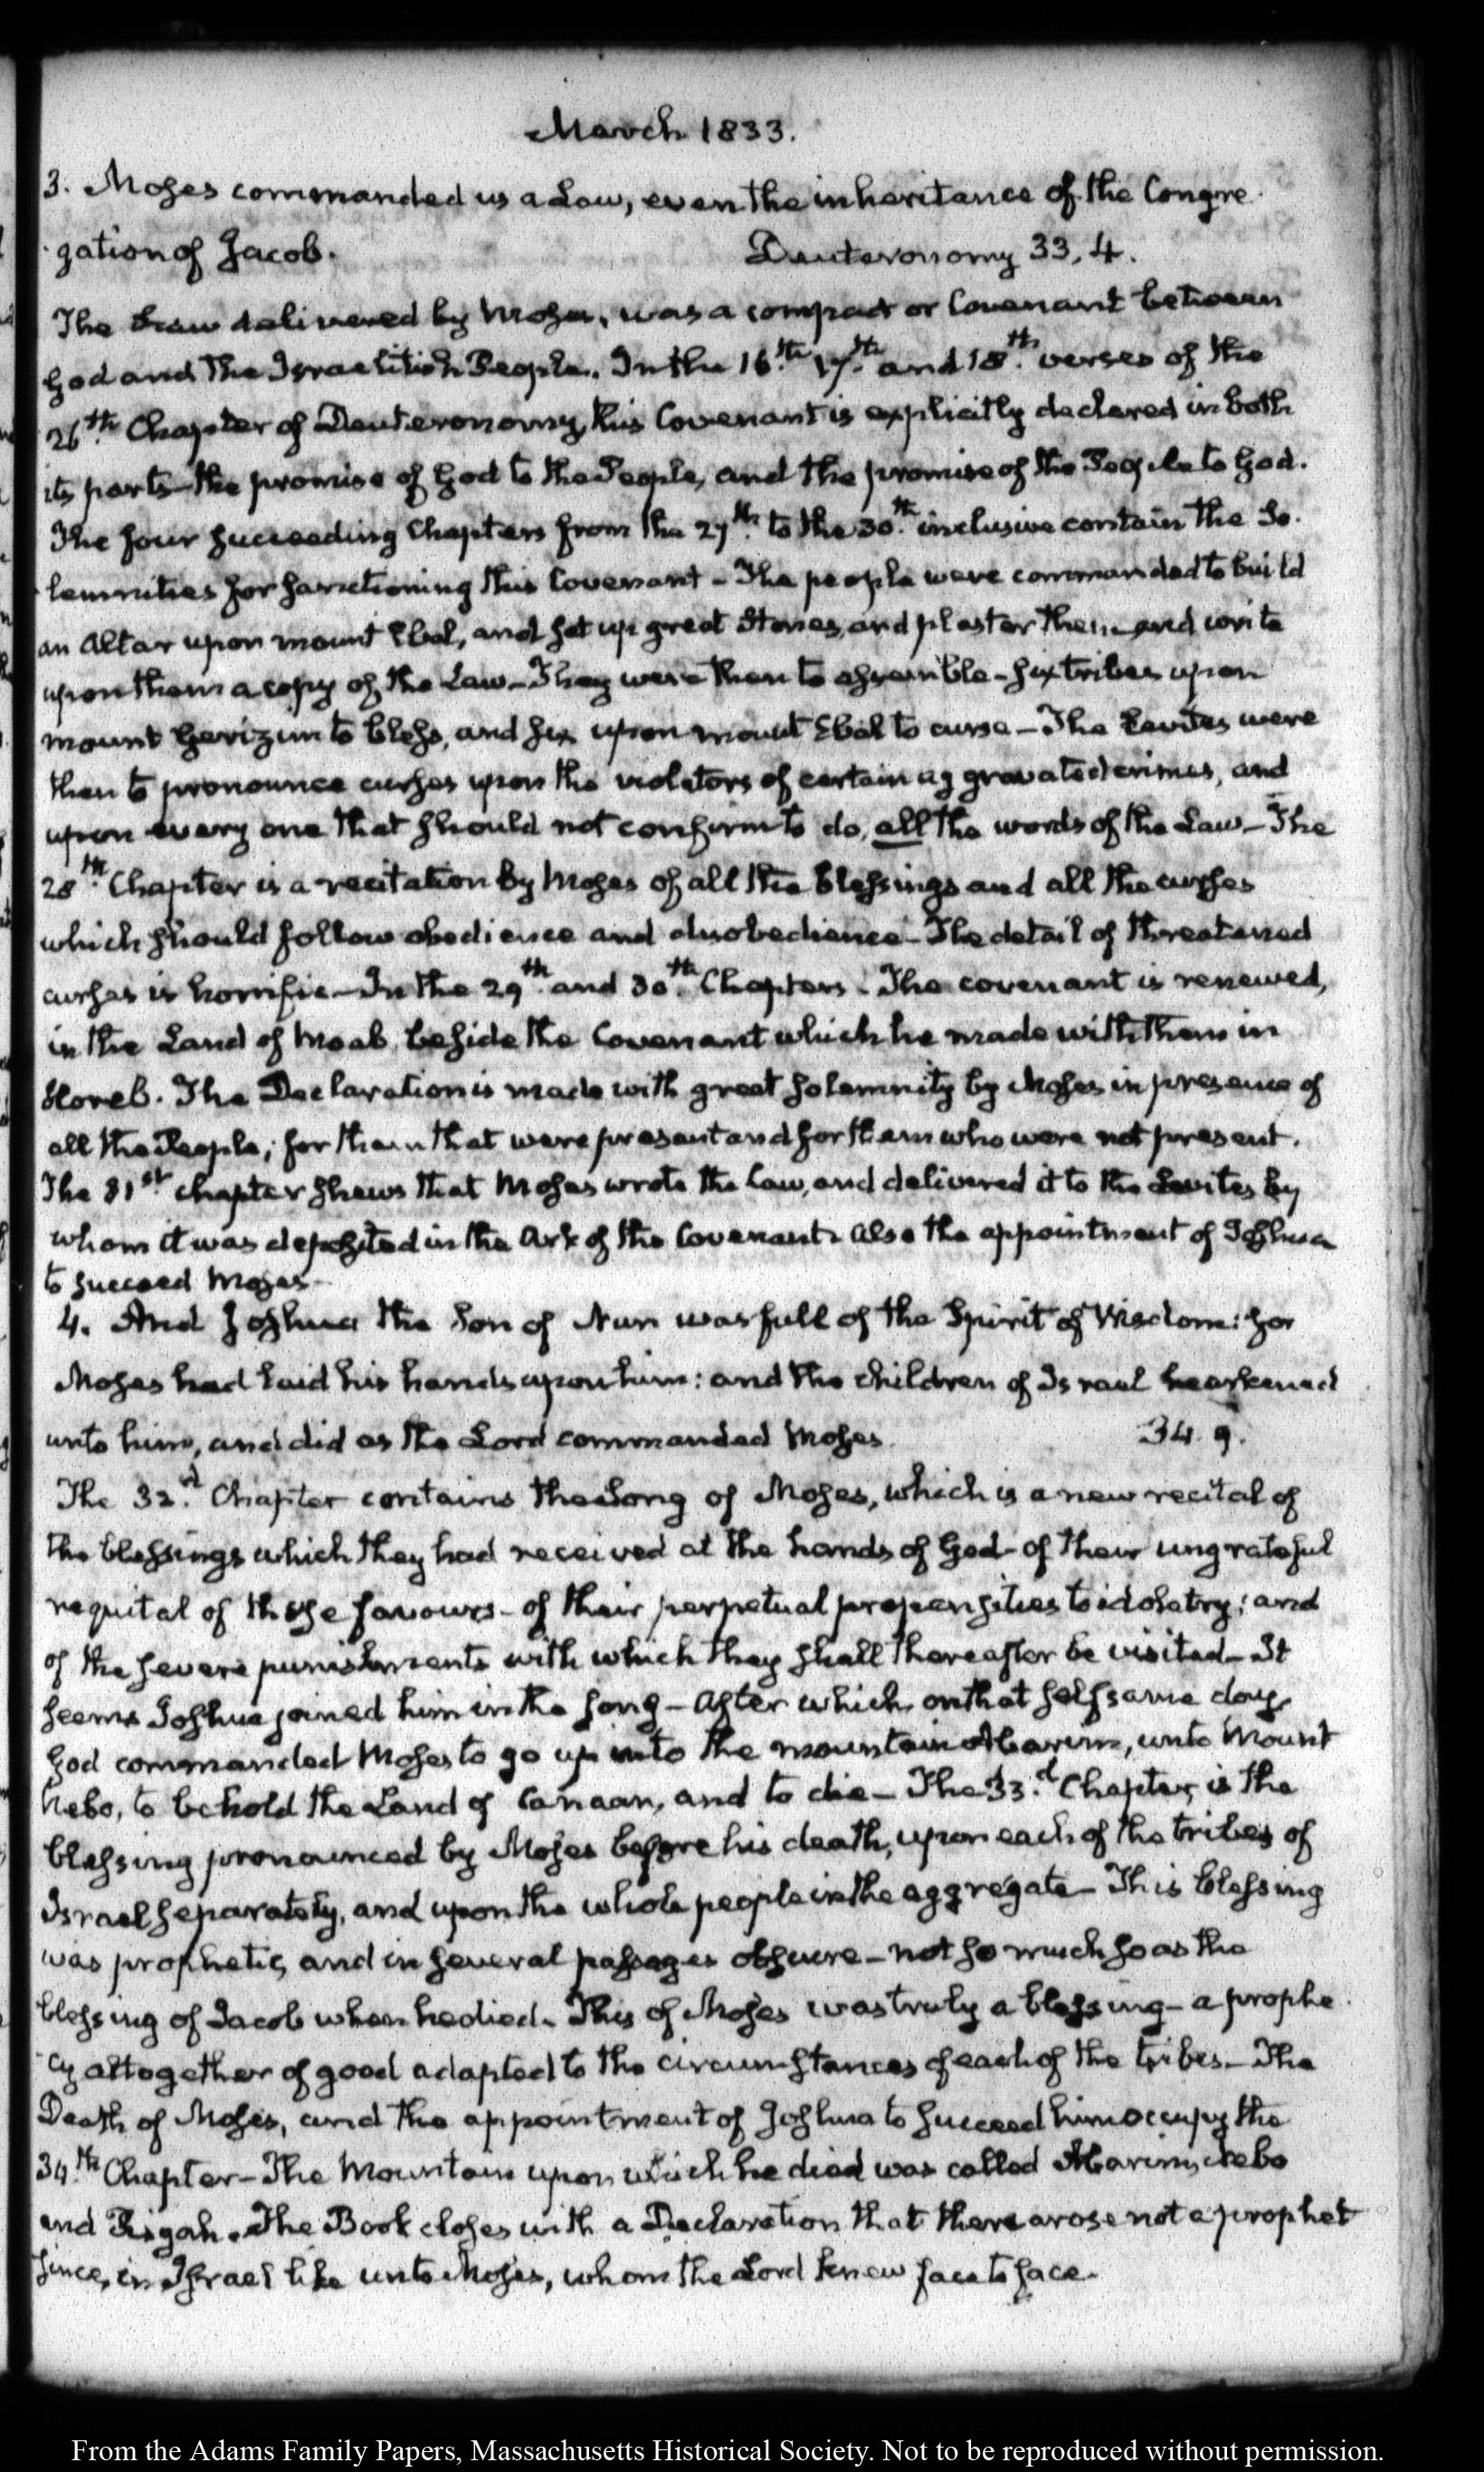 March 1833.
3. Moses commanded us a Law, even the inheritance of the Congre
gation of Jacob. Deuteronomy 33, 4.
The Law delivered by Moses, was a compact or Covenant between
God and the Israelitish People. In the 16th. 17th. and 18th. verses of the
26th. Chapter of Deuteronomy, this Covenant is explicitly declared in both
its parts—the promise of God to the People, and the promise of the People to God.
The four succeeding Chapters from the 27th. to the 30th. inclusive contain the So-
lemnities for sanctioning this Covenant—The people were commanded to build
an Altar upon mount Ebal, and set up great Stones, and plaster them and write
upon them a copy of the Law—They were then to assemble—six tribes upon
mount Gerizim to bless, and six upon mount Ebal to curse—The Levites were
then to pronounce curses upon the violators of certain aggravated crimes, and
upon every one that should not confirm to do, all the words of the Law—The
28th. Chapter is a recitation by Moses of all the blessings and all the curses
which should follow obedience and disobedience—The detail of threatened
curses is horrific—In the 29th. and 30th. Chapters. The covenant is renewed,
in the Land of Moab, beside the Covenant which he made with them in
Horeb. The Declaration is made with great solemnity by Moses in presence of
all the People; for them that were present and for them who were not present.
The 31st. chapter shews that Moses wrote the Law, and delivered it to the Levites by
whom it was deposited in the Ark of the Covenant: also the appointment of Joshua
to succeed Moses—
4. And Joshua the Son of Nun was full of the Spirit of Wisdom: for
Moses had laid his hands upon him: and the children of Israel hearkened
unto him, and did as the Lord commanded Moses. 34. 9.
The 32d. Chapter contains the Song of Moses, which is a new recital of
the blessings which they had received at the hands of God—of their ungrateful
requital of those favours—of their perpetual propensities to idolatry; and
of the severe punishments with which they shall thereafter be visited—It
seems Joshua joined him in the song—After which on that self same day
God commanded Moses to go up into the mountain Abarim, unto Mount
Nebo, to behold the Land of Canaan, and to die—The 33.d Chapter, is the
blessing pronounced by Moses before his death, upon each of the tribes of
Israel separately, and upon the whole people in the aggregate—This blessing
was prophetic, and in several passages obscure—not so much so as the
blessing of Jacob when he died. This of Moses was truly a blessing—a prophe
cy altogether of good adapted to the circumstances of each of the tribes—The
Death of Moses, and the appointment of Joshua to succeed him occupy the
34.th Chapter—The Mountain upon which he died was called Abarim, Nebo
and Pisgah. The Book closes with a Declaration that there arose not a prophet
since, in Israel like unto Moses, whom the Lord knew face to face.
From the Adams Family Papers, Massachusetts Historical Society. Not to be reproduced without permission.